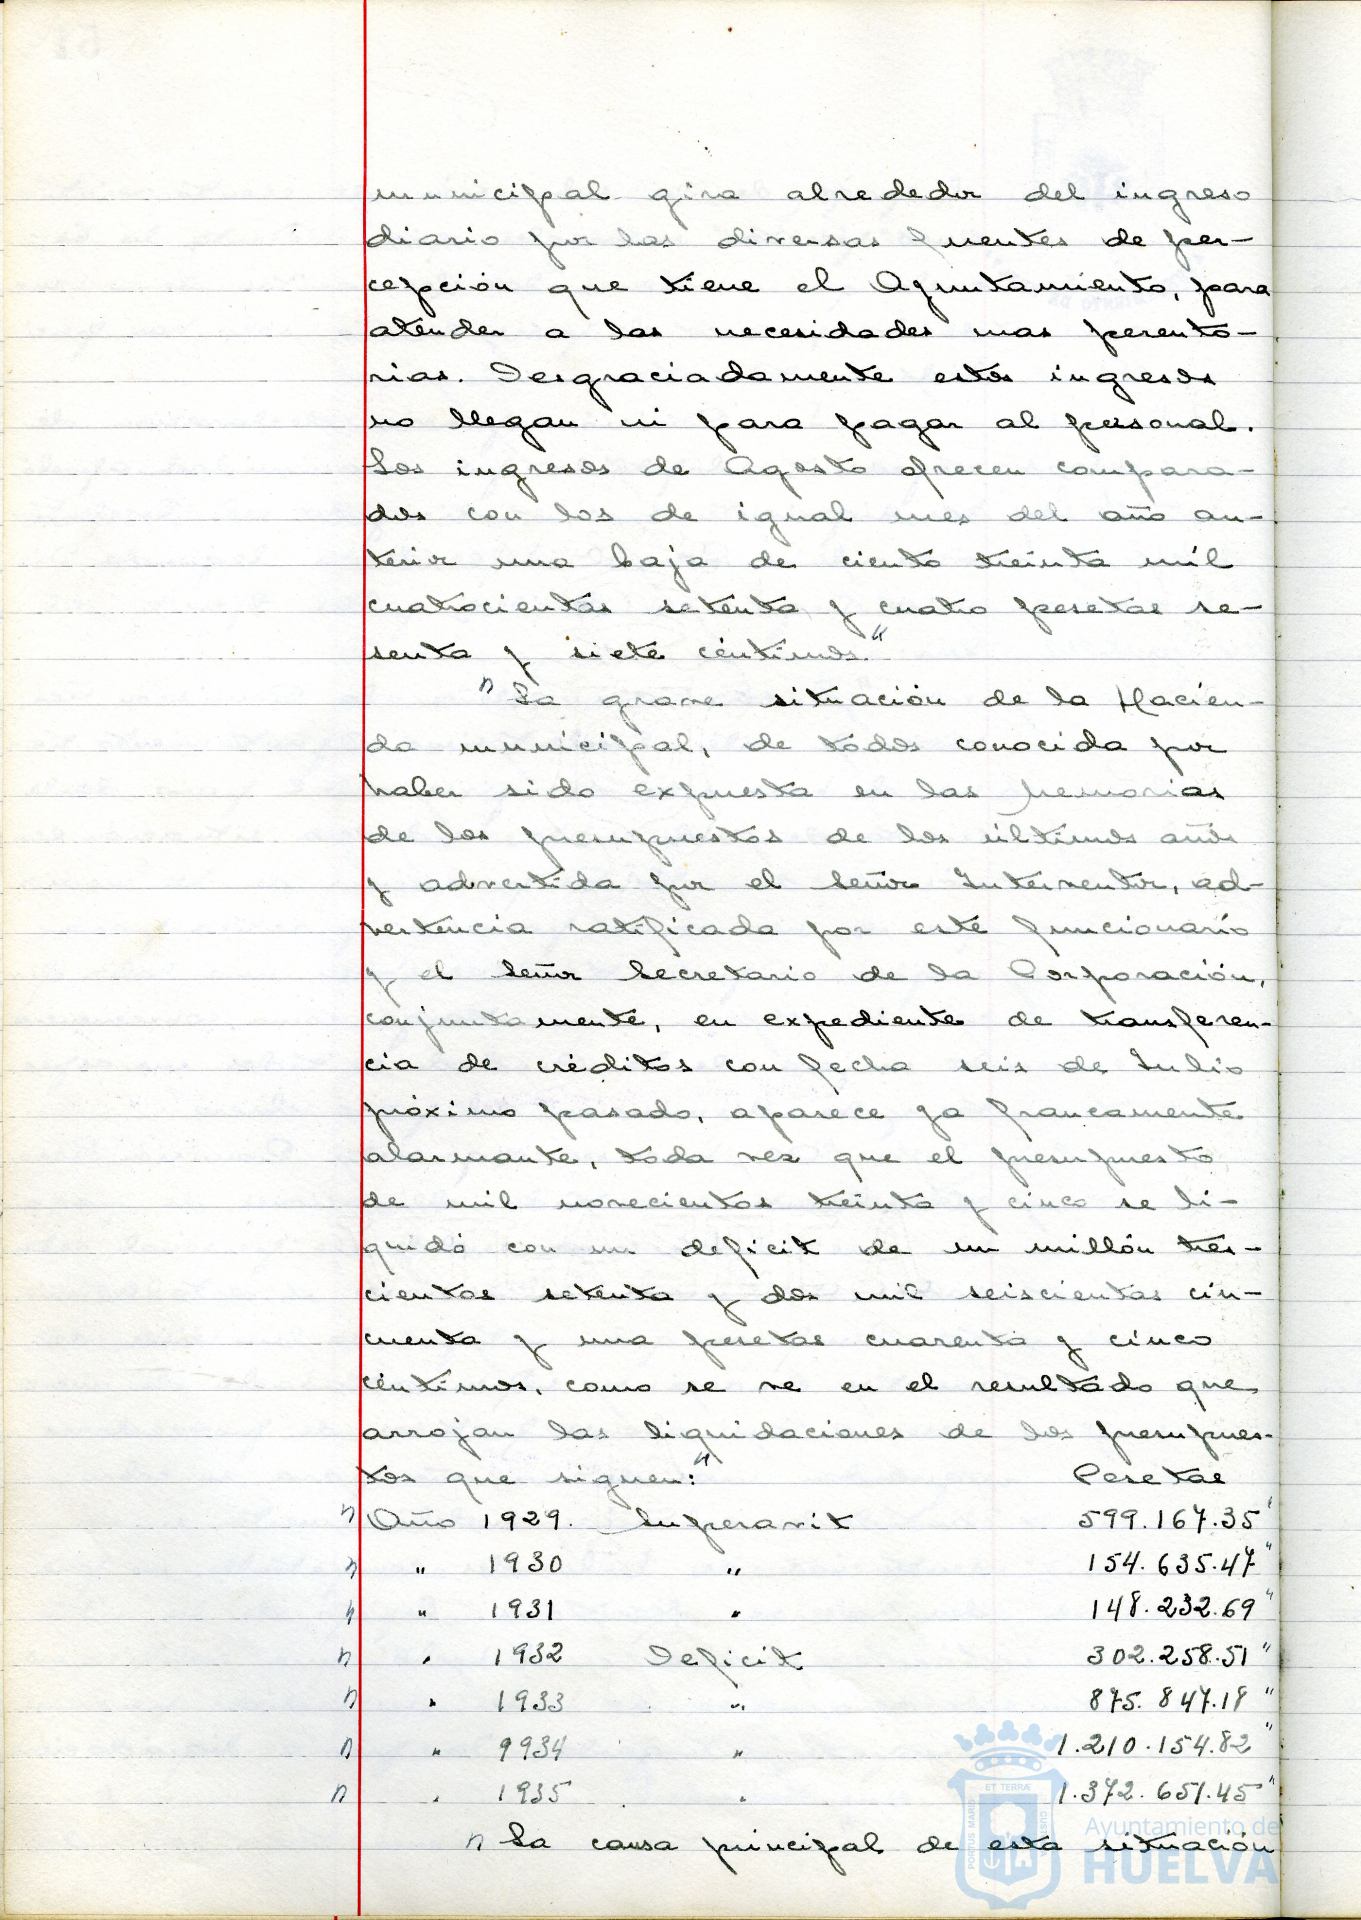 municipal gira alrededor del ingreso
diario por las diversas fuentes de per-
cepción que tiene el Ayuntamiento, para
atender a las necesidades mas perento-
rias. Desgraciadamente estos ingresos
no llegan ni para pagar al personal.
Los ingresos de Agosto ofrecen compara-
dos con los de igual mes del año an-
terior una baja de ciento treinta mil
cuatrocientas setenta y cuatro pesetas se-
senta y siete céntimos."
"La grave situación de la Hacien-
da municipal, de todos conocida por
haber sido expuesta en las memorias
de los presupuestos de los últimos años
y advertida por el señor Interventor, ad-
vertencia ratificada por este funcionario
y el señor Secretario de la Corporación,
conjuntamente, en expediente de transferen-
cia de créditos con fecha seis de Julio
próximo pasado, aparece ya francamente
alarmante, toda vez que el presupuesto
de mil novecientos treinta y cinco se li-
quidó con un deficit de un millón tres-
cientas setenta y dos mil seiscientas cin-
cuenta y una pesetas cuarenta y cinco
céntimos, como se ve en el resultado que
arrojan las liquidaciones de los presupues-
tos que siguen:" Pesetas
"Año 1929. Superavit 599.167.35"
" " 1930 " 154.635.47"
" " 1931 " 148.232.69"
" " 1932 Deficit 302.258.51"
" " 1933 " 875.847.18"
" " 9934 " 1.210.154.82"
" " 1935 " 1.372.651.45"
"La causa principal de esta situación
PORTUS MARIS ET TERRÆ CUSTODIA
Ayuntamiento de
HUELVA